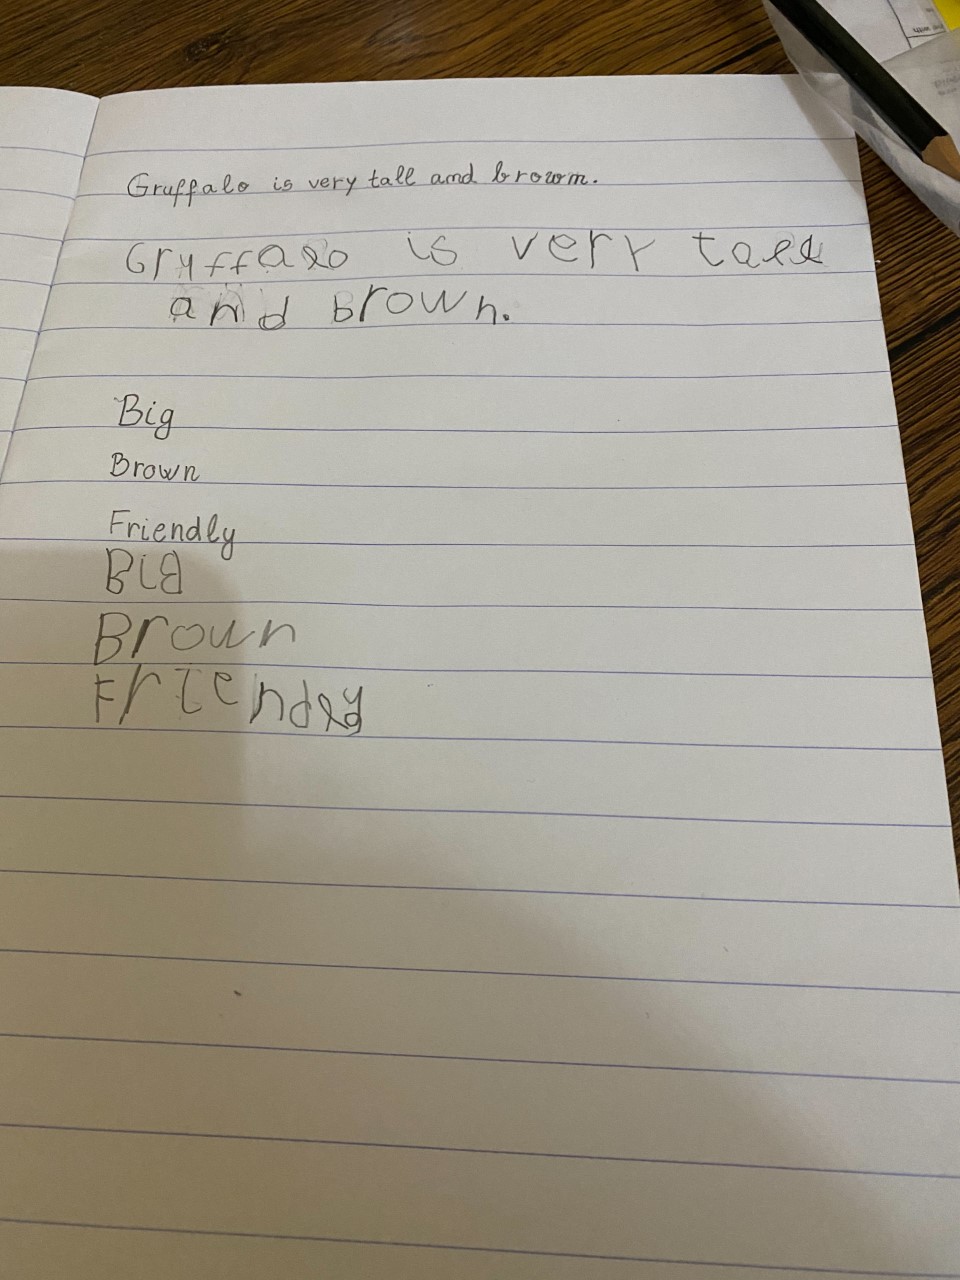 Gruffalo is very tall and brown.
Gryffalo is very tall
and Brown.
Big
Brown
Friendly
Big
Brown
Friendly